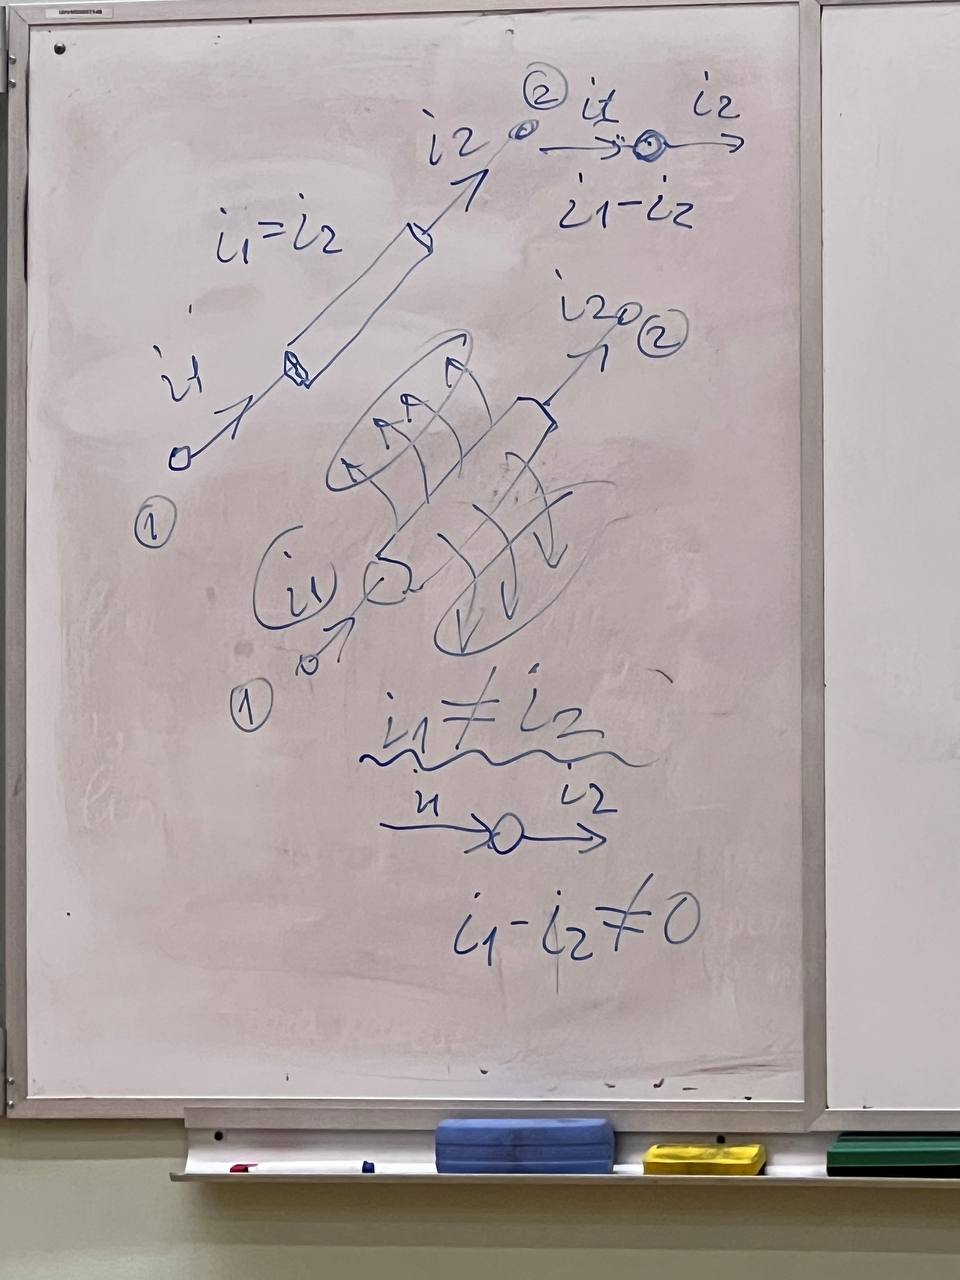 ② i1 i2
i2
i1-i2
i1=i2
i1
①
i2 ②
i1
①
i1≠i2
i1 i2
i1-i2≠0